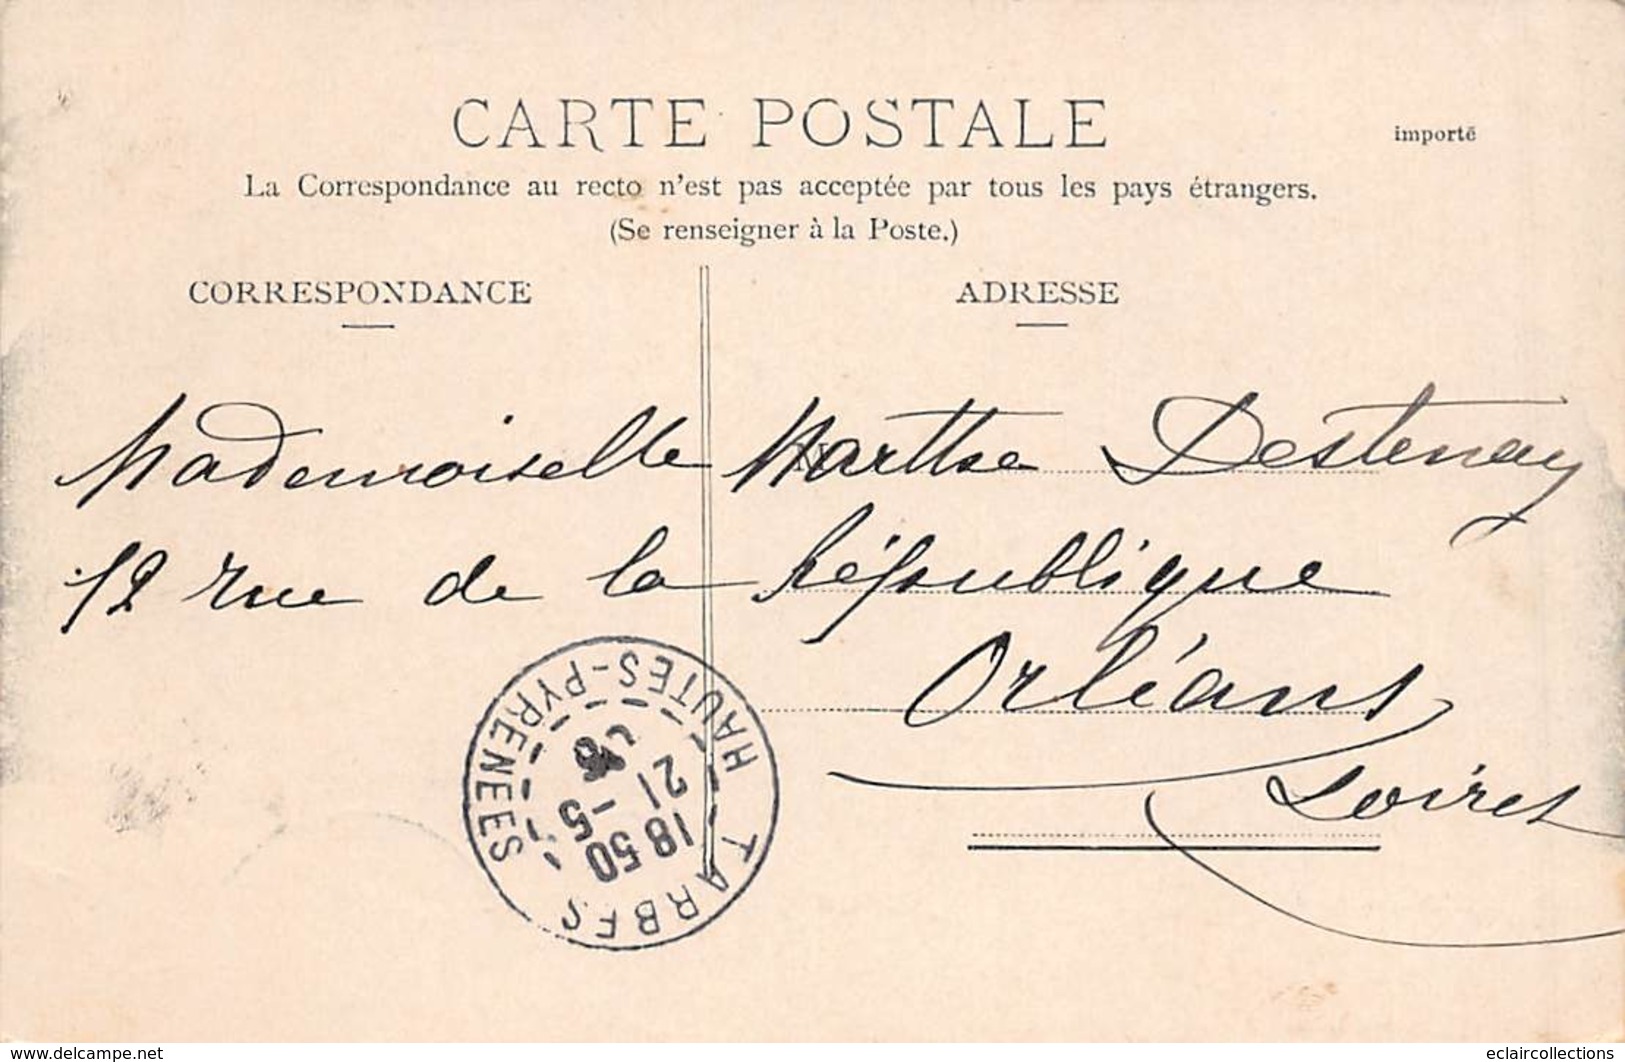 CARTE POSTALE
importé
La Correspondance au recto n'est pas acceptée par tous les pays étrangers.
(Se renseigner à la Poste.)
CORRESPONDANCE
ADRESSE
M
Mademoiselle Marthe Destenay
12 rue de la République
Orléans
Loiret
TARBES
HAUTES-PYRENEES
18 50
21 -5
www.delcampe.net
eclaircollections